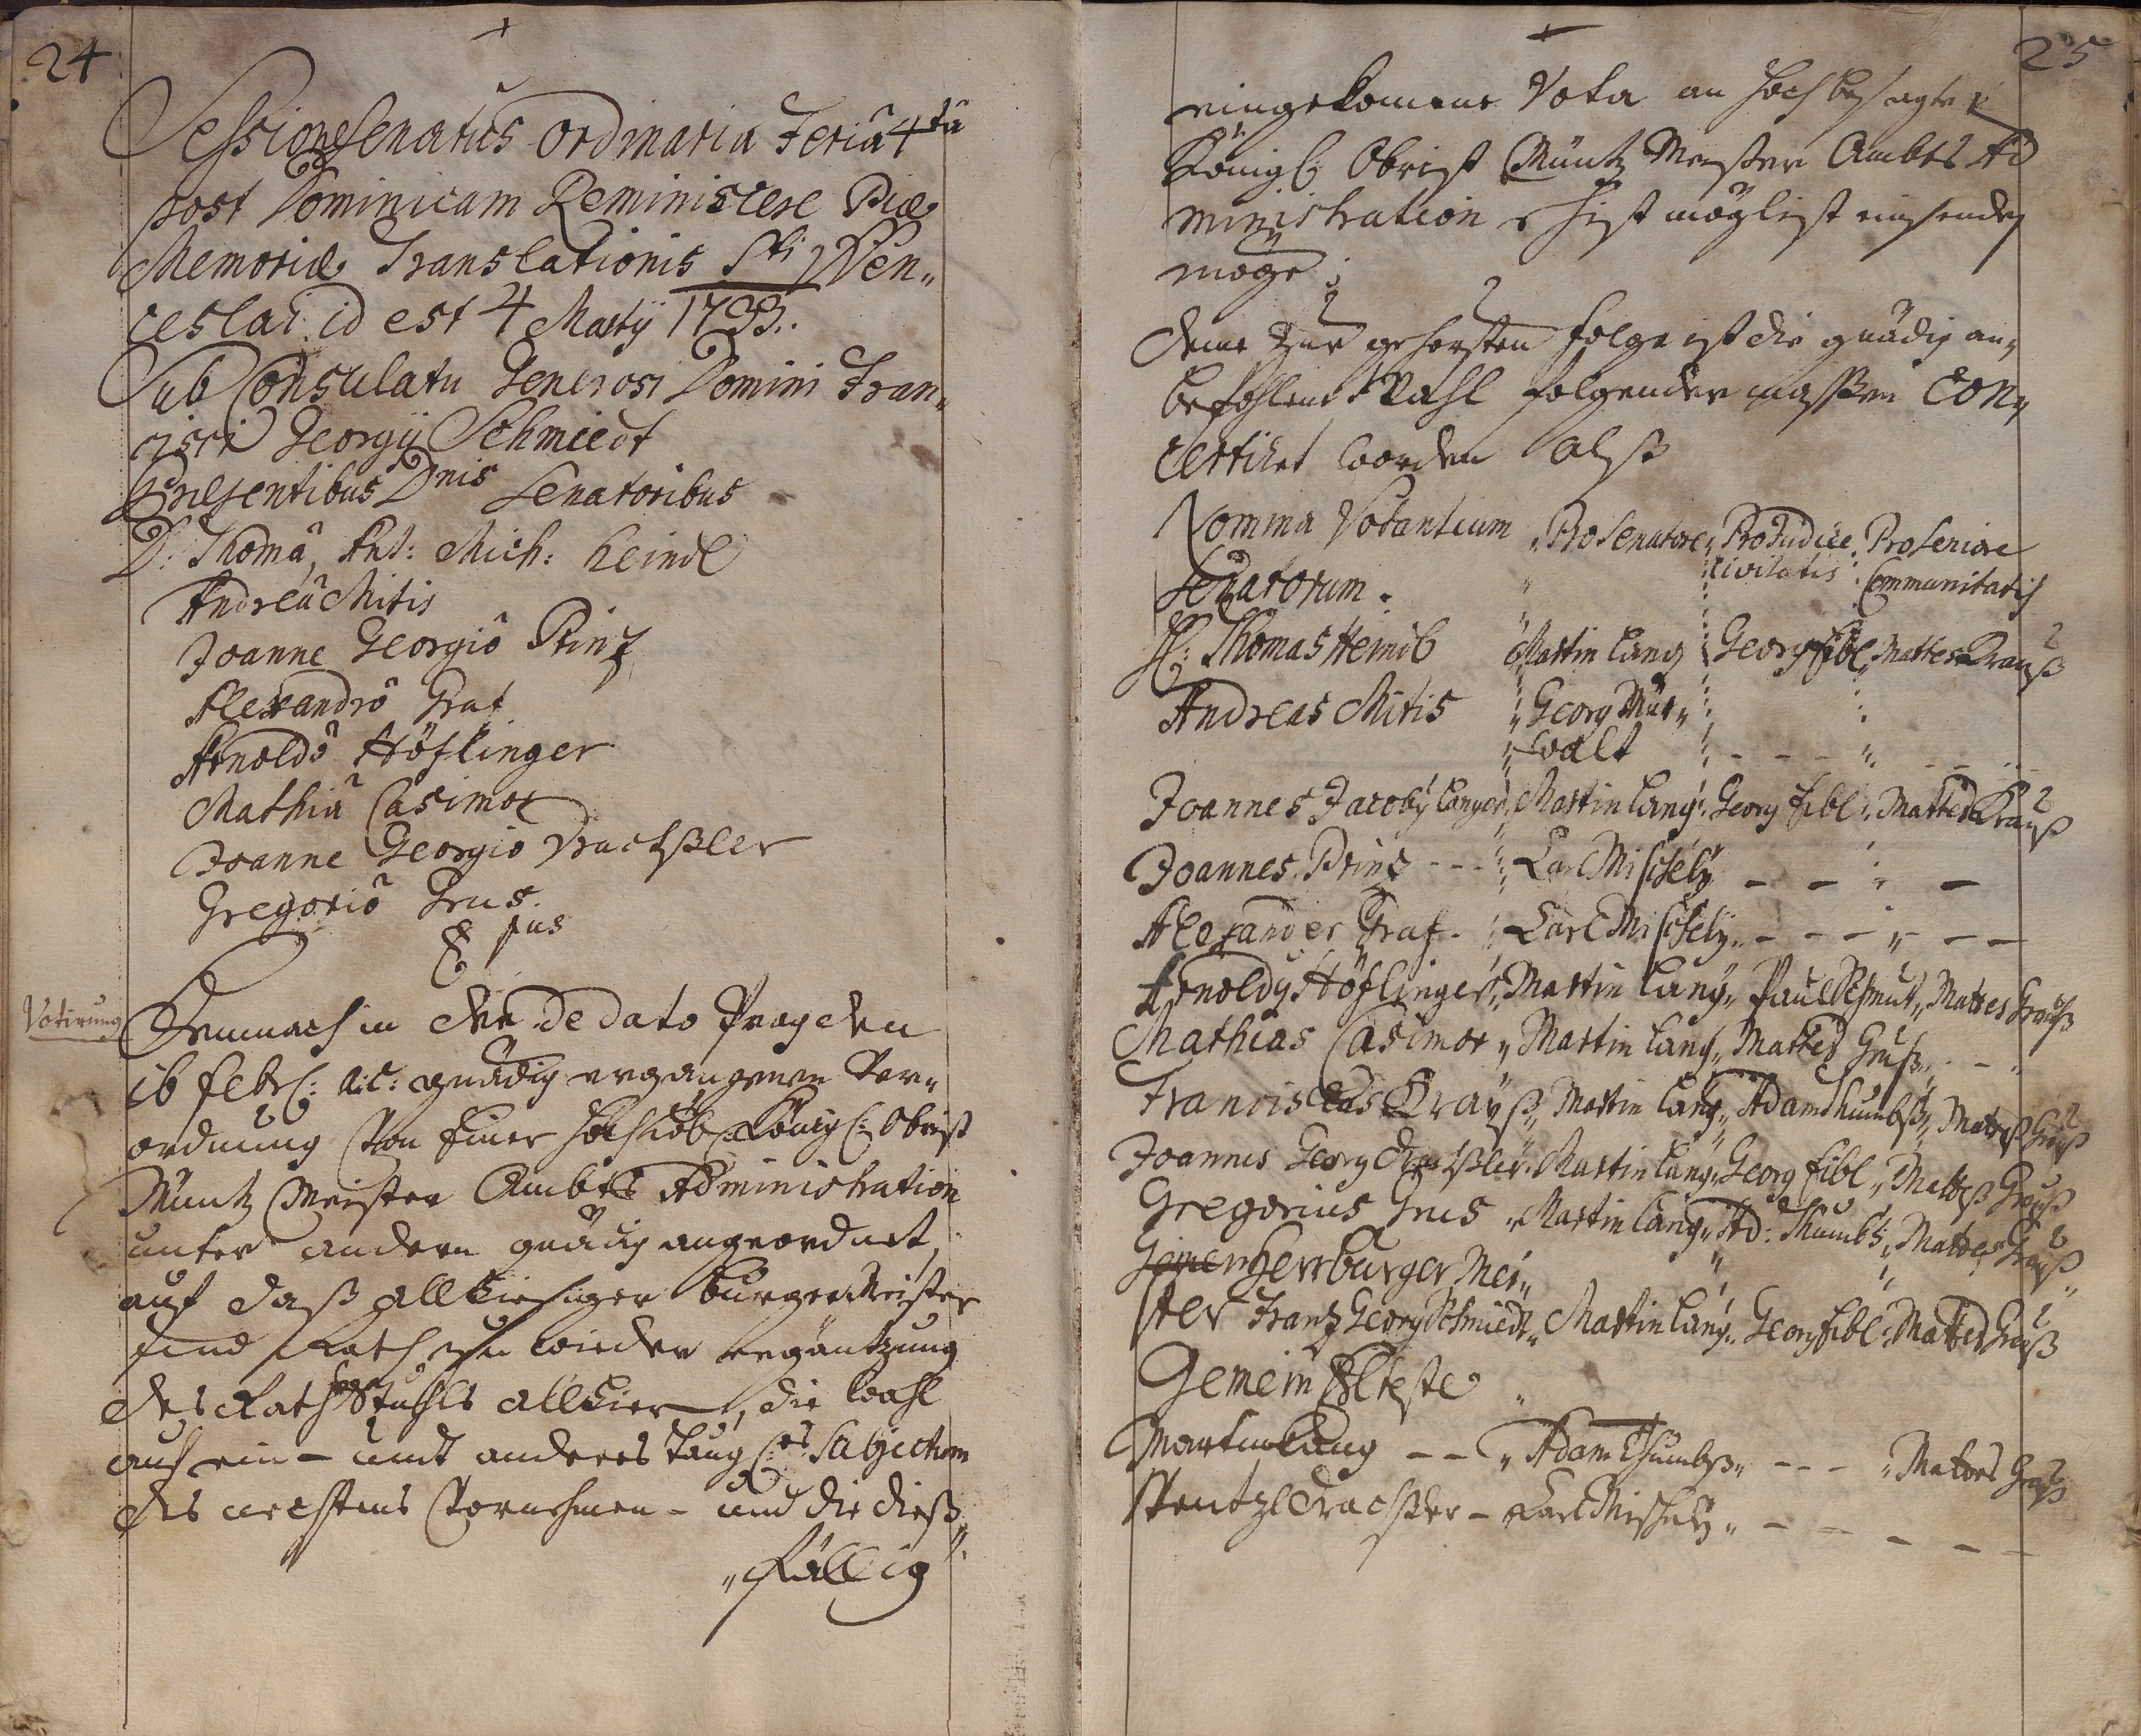 24
Sessione Senatus Ordinaria Feria 4ta
post Dominicam Reminiscere Piæ
Memoriæ Translationis Sti Wen„
ceslai id est 4 Martij
Sub Consulatu Generosi Domini Fran„
cisci Georgij Schmiedt
Præsentibus Dnis Senatoribus
D: Thomâ, Ant: Mich: Heindl
Andreâ Mitis
Joanne Georgiô Prinz
Alexandrô Graf
Arnoldô Höflinger
Mathiâ Casimor
Joanne Georgiô Drachßler
Gregoriô Grus.
Votirung
Demnach in der De dato Prag den
16 Febr: a: c: gnädig ergangenen Ver„
ordnung Von Einer Hochlöb: Königl: Obrist
Müntz Meister Ambts Administration
unter andern gnädig angeordnet,
auf daß allhiesiger Burgermeister
und Rath zu wieder ergäntzung
des Rath Stuhls allhier, die wahl
auf ein- undt anderes taugl: Subjectum
des nechstens Vornehmen- und die dieß„
„fällig
25
eingekomene Vota an hoch besagte
Königl: Obrist Müntz Meister Ambts Ad
ministration ehist möglist einsenden
möge;
deme zur gehorsten folge ist die gnädig an„
befohlene Wahl folgender massen con„
certiret worden alß
Nomina Votantium „Pro Senatore„ Pro Judice. Pro Seniore
Senatorum. Civitatis: Communitatis
H: Thomas Heindl Martin Lang Georg Fibl, Mattes Krauß
Andreas Mitis „Georg Mur„
walt - - - „
Joannes Jacoby Langer„ Martin Lang„ Georg Fibl„ Mattes Krauß
Joannes Prinz - - „ Carl Mischely - - „ -
Alexander Graf. „ Carl Mischely„ - - - „ - -
Arnoldy Höflinger„ Martin Lang„ Paul Schmut„ Mattes Grauß
Mathias Casimor „ Martin Lang„ Mattes Gruß„ - - „
Franciscus Krayß„ Martin Lang„ Adam Thumbß„ Matteß Grauß
Joannes Georg Drachßler„ Martin Lang„ Georg Fibl„ Matteß Grauß
Gregorius Grus „ Martin Lang„ Ad: Thumbs„ Mattes Grauß
Gemein Herr Burger Mei„
ster Frantz Georg Schmiedt„ Martin Lang„ Georg Fibl„ Mattes Grauß
Gemein Elteste „
Martin Lang - - „ Adam Thumbß„ - - - „ Mattes Grauß
Wentzl Drachßler - Carl Mischely„ - - - - -